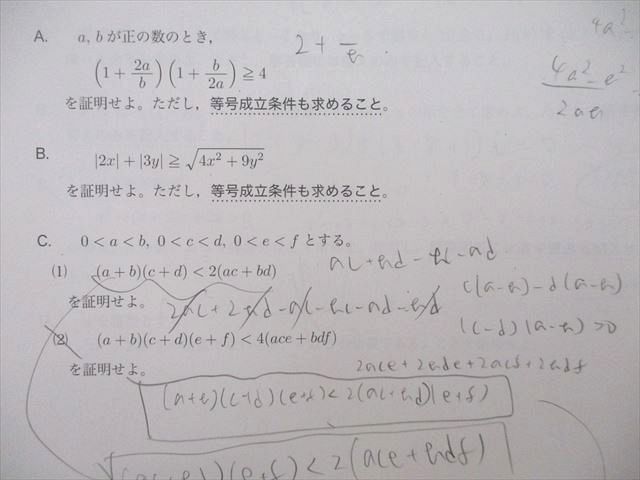 A. a, b が正の数のとき,
(1 + 2a/b)(1 + b/2a) ≧ 4
を証明せよ。ただし，等号成立条件も求めること。
B.
|2x| + |3y| ≧ √(4x² + 9y²)
を証明せよ。ただし，等号成立条件も求めること。
C. 0 < a < b, 0 < c < d, 0 < e < f とする。
(1) (a + b)(c + d) < 2(ac + bd)
を証明せよ。
(2) (a + b)(c + d)(e + f) < 4(ace + bdf)
を証明せよ。
2 +
4a²
ac + bd - bc - ad
c(a-b) - d(a-b)
2ac + 2bd - ac - bc - ad - bd
(c-d)(a-b) > 0
2ace + 2bde + 2acf + 2bdf
(a+b)(c+d)(e+f) < 2(ac+bd)(e+f)
(e+f) < 2(ace + bdf)